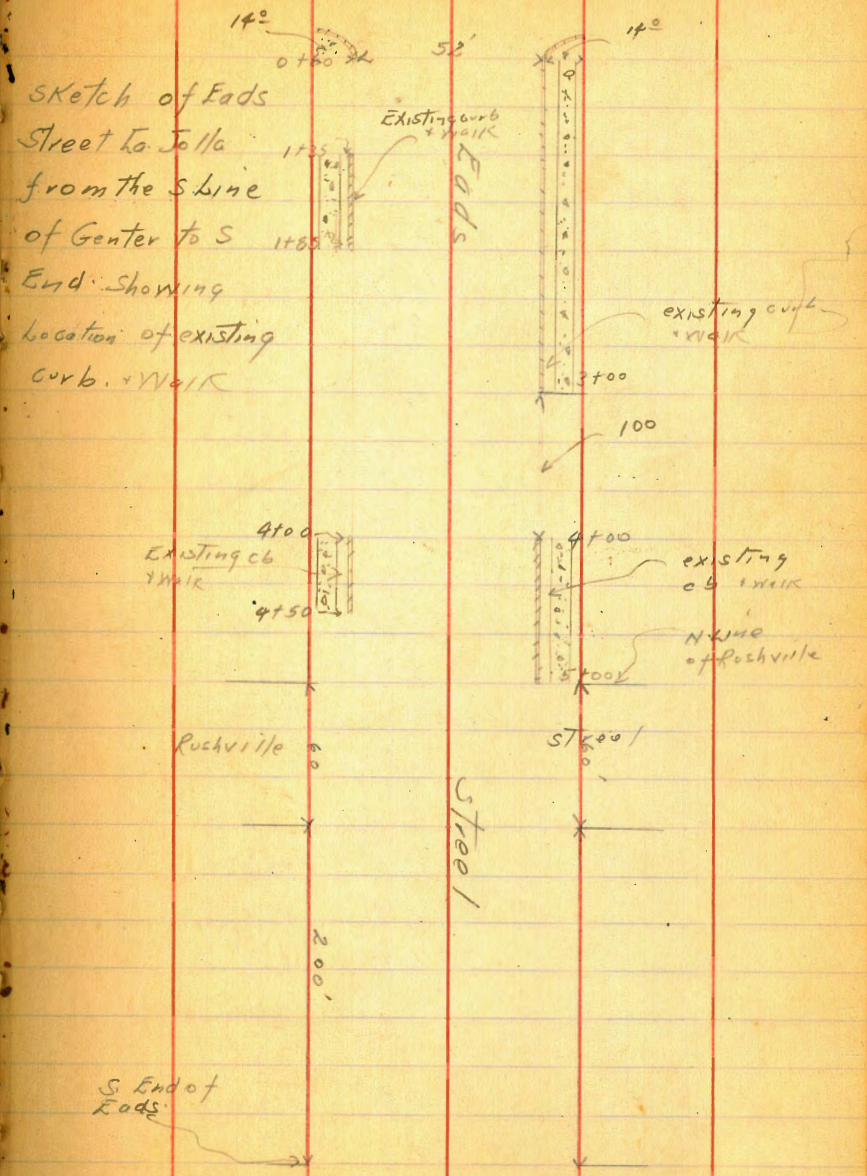 14º
52'
14º
0+60
Sketch of Eads
Street La Jolla
from the S Line
of Genter to S
End Showing
Location of existing
curb. + Walk
Existing curb
+ Walk
Eads
1+35
1+85
existing curb
+ Walk
3+00
100
4+00
Existing cb
+ Walk
4+50
4+00
existing
cb + Walk
N Line
of Rushville
5+00
Rushville
Street
60
60'
Street
200'
S. End of
Eads